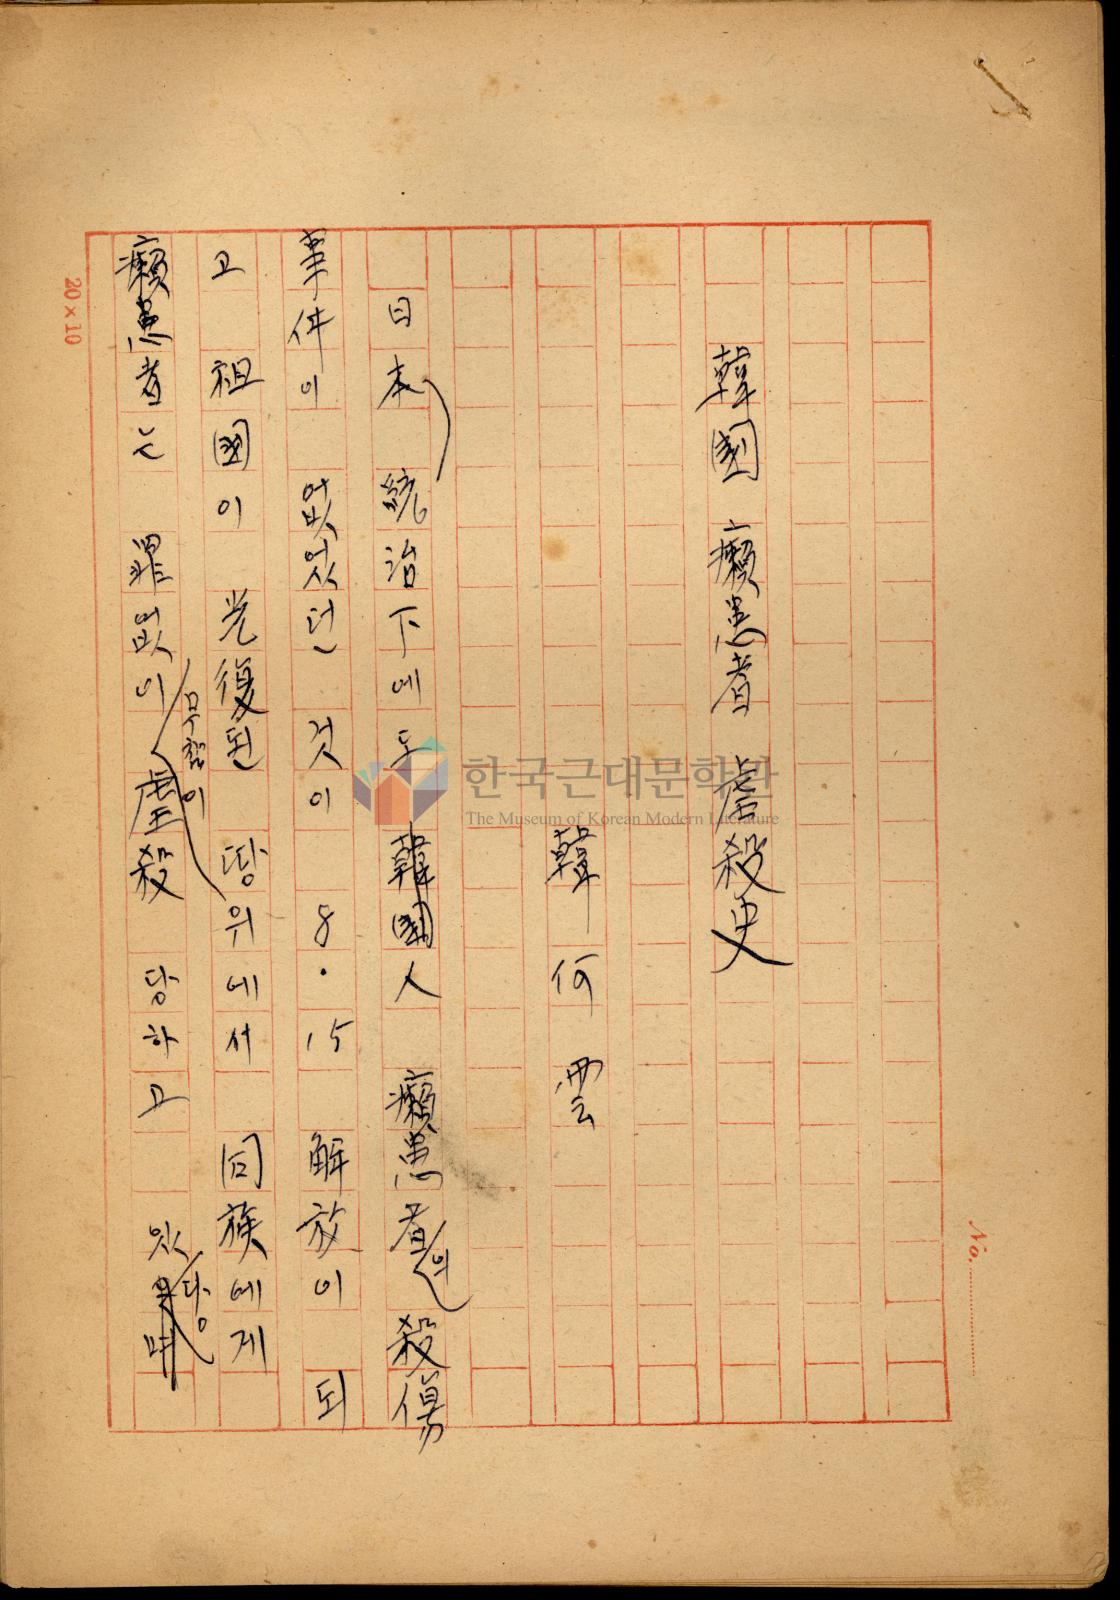 No.
韓國 癩患者 虐殺史
韓何雲
日本 統治下에도 韓國人 癩患者의 殺傷
事件이 없었던 것이 8·15 解放이 되
고 祖國이 光復된 땅위에서 同族에게
무참이
癩患者는 罪없이 虐殺 당하고 있
다
20×10
한국근대문학관
The Museum of Korean Modern Literature